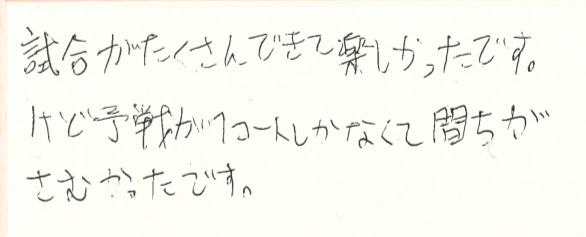 試合がたくさんできて楽しかったです。
けど予戦が1コートしかなくて間ちが
さむかったです。